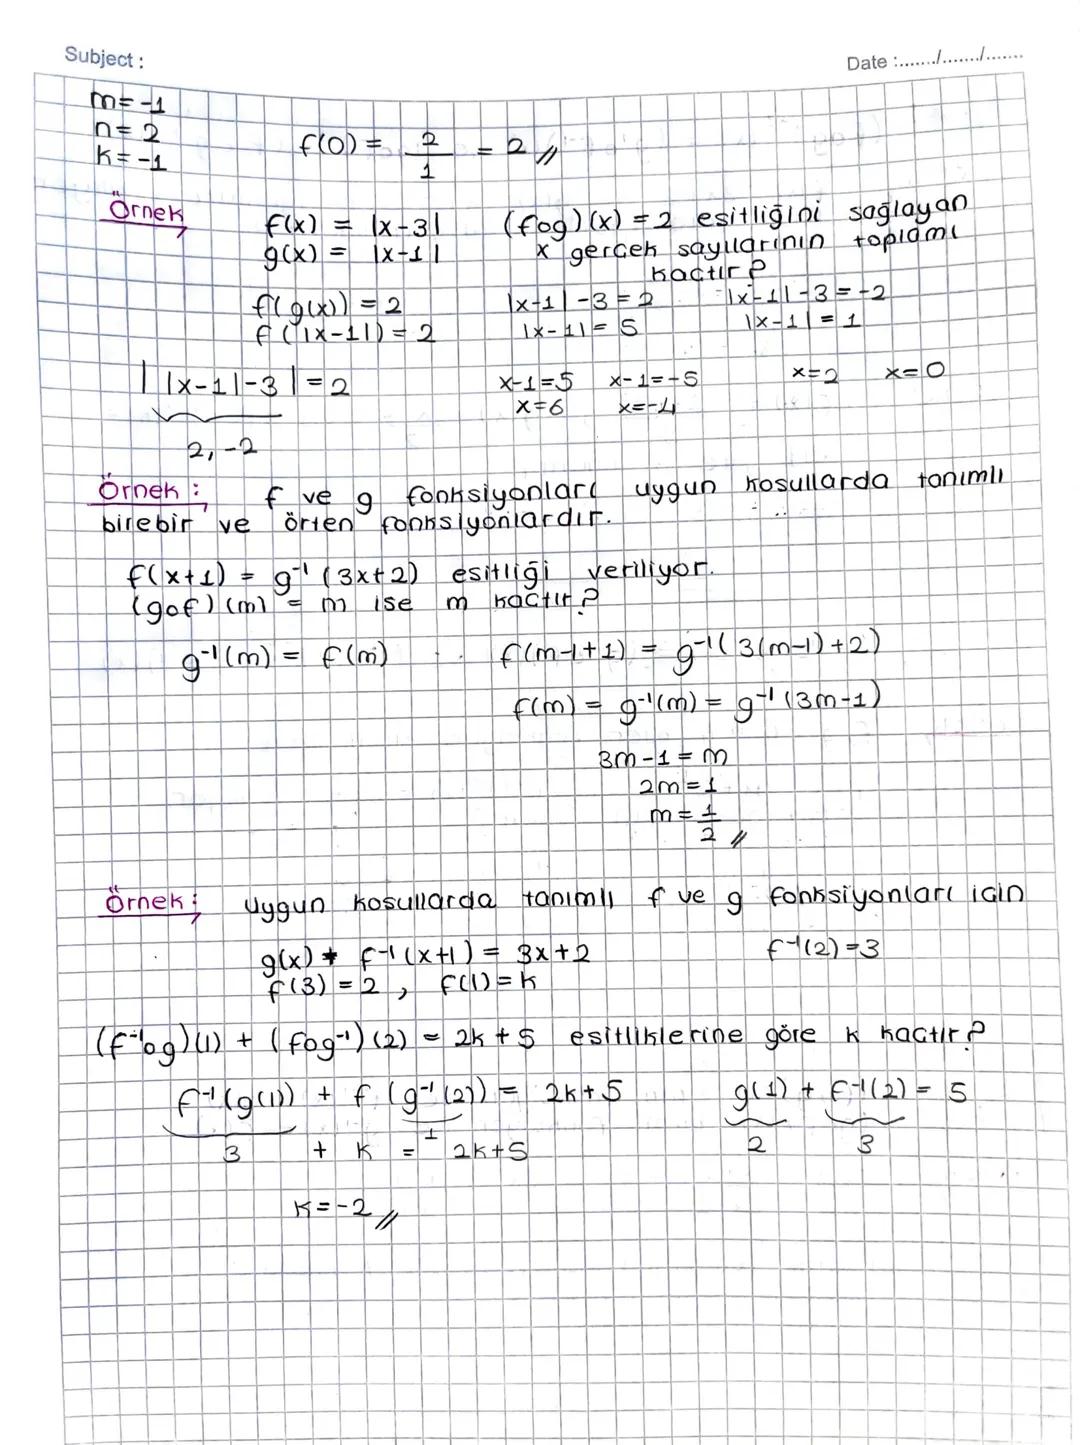 Subject :
Date :......./......./.......
m= -1
n= 2
k= -1
f(0) = 2/1 = 2 //
Örnek
f(x) = |x-3|
(fog)(x) = 2 esitliğini sağlayan
g(x) = |x-1|
x gerçek sayılarının toplamı
kaçtır?
f(g(x)) = 2
|x-1| -3 = 2
|x-1| -3 = -2
f(|x-1|) = 2
|x-1| = 5
|x-1| = 1
| |x-1| -3 | = 2
x-1=5
x-1=-5
x=2
x=0
x=6
x=-4
2, -2
Örnek :
f ve g fonksiyonları uygun kosullarda tanımlı
birebir ve örten fonksiyonlardır.
f(x+1) = g⁻¹ (3x+2) esitliği veriliyor.
(gof)(m) = m ise m kaçtır?
g⁻¹(m) = f(m)
f(m-1+1) = g⁻¹(3(m-1)+2)
f(m) = g⁻¹(m) = g⁻¹(3m-1)
3m-1 = m
2m = 1
m = 1/2 //
Örnek ;
uygun kosullarda tanımlı f ve g fonksiyonları icin
g(x) + f⁻¹(x+1) = 3x+2
f⁻¹(2)=3
f(3) = 2 , f(1) = k
(f⁻¹og)(1) + (fog⁻¹)(2) = 2k + 5 esitliklerine göre k kaçtır?
f⁻¹(g(1)) + f (g⁻¹(2)) = 2k+5
g(1) + f⁻¹(2) = 5
1
3 + k = 2k+5
2
3
k = -2 //